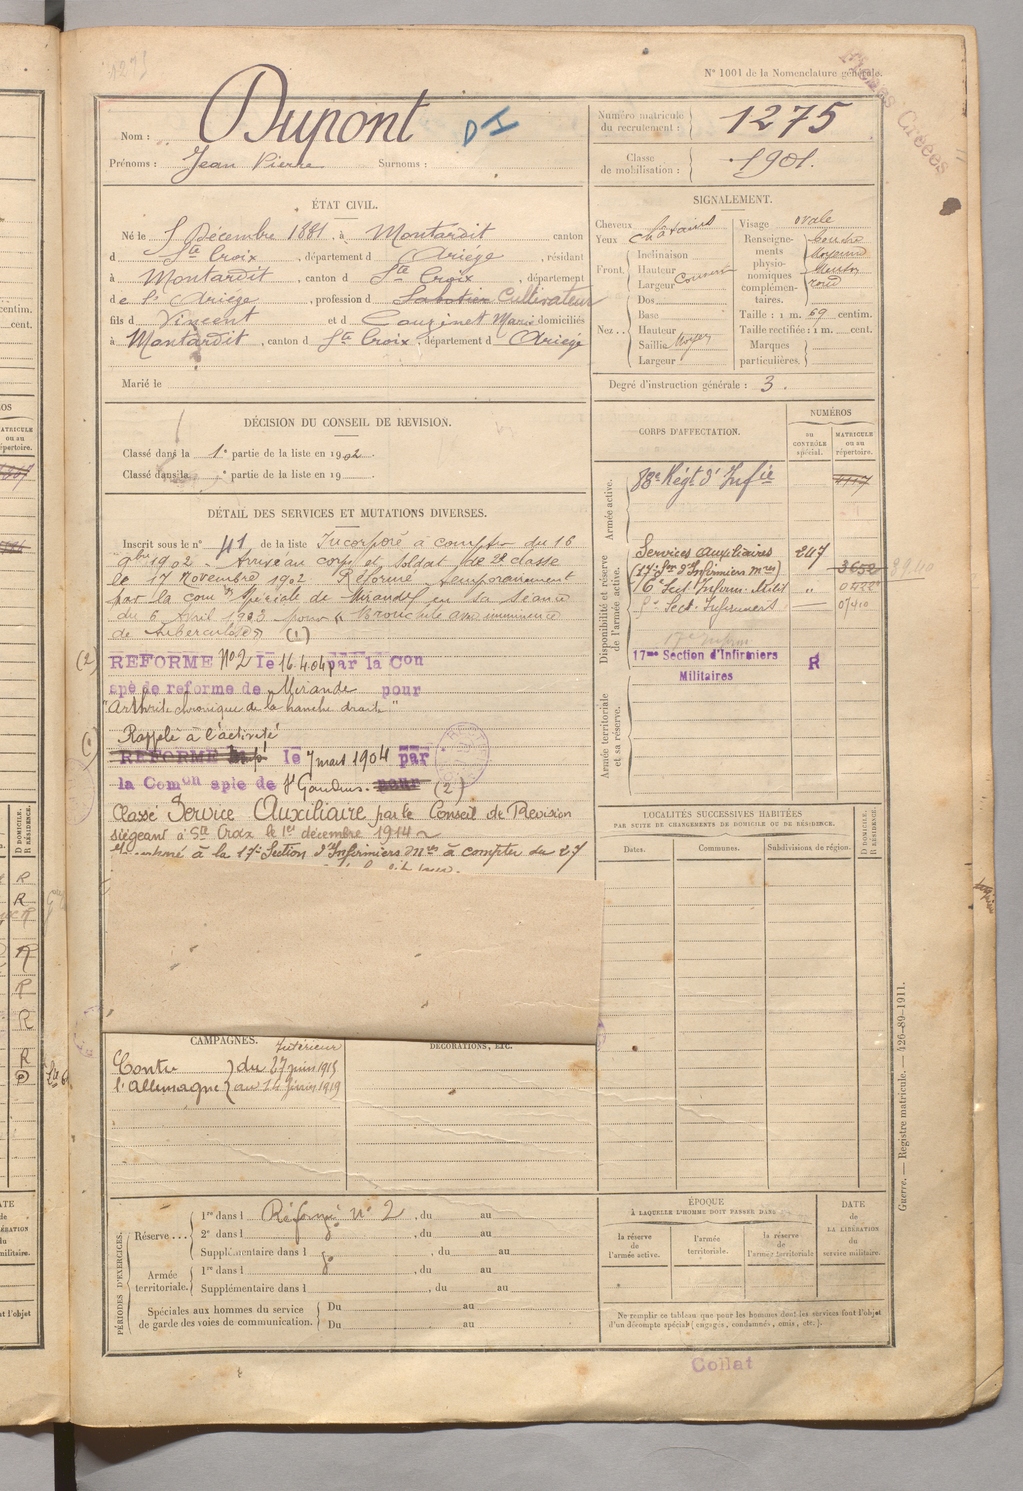 N° 1001 de la Nomenclature générale.
Nom : Dupont
Prénoms : Jean Pierre Surnoms :
Numéro matricule du recrutement : 1275
Classe de mobilisation : 1901.
ÉTAT CIVIL.
Né le 5 Décembre 1881, à Montardit canton
d Ste Croix, département d Ariège, résidant
à Montardit, canton d Ste Croix, département
de l' Ariège, profession d Sabotier Cultivateur
fils d Vincent et d Couzinet Marie domiciliés
à Montardit, canton d Ste Croix, département d Ariège
Marié le
SIGNALEMENT.
Cheveux Châtains
Yeux
Front. Inclinaison
Hauteur
Largeur
Nez. Dos
Base
Hauteur
Saillie Moyen
Largeur
Visage ovale
Renseignements physionomiques complémentaires.
Menton
rond
Taille : 1 m. 69 centim.
Taille rectifiée : 1 m. cent.
Marques particulières.
Degré d'instruction générale : 3.
DÉCISION DU CONSEIL DE REVISION.
Classé dans la 1e partie de la liste en 1902.
Classé dans la e partie de la liste en 19
DÉTAIL DES SERVICES ET MUTATIONS DIVERSES.
Inscrit sous le n° 41 de la liste Incorporé à compter du 16
9bre 1902. Arrivé au corps et soldat de 2e classe
le 17 Novembre 1902. Réformé temporairement
par la comon spéciale de Mirande en sa séance
du 6 Avril 1903 pour
de tuberculose (1)
(2) REFORME N°2 le 16.4.04 par la Con
spé de reforme de Mirande pour
"Arthrite chronique de la hanche droite"
Rappelé à l'activité
(1) REFORME le 7 mars 1904 par
la Comon sple de St Gaudens. pour (2)
Classé Service Auxiliaire par le Conseil de Revision
siégeant à Ste Croix le 1er décembre 1914
à la 17e Section d'Infirmiers Mres à compter du 27
CORPS D'AFFECTATION.
NUMÉROS
AU CONTRÔLE spécial.
MATRICULE ou au répertoire.
Armée active.
88e Régt d'Infie
Disponibilité et réserve de l'armée active.
Services auxiliaires 247
(17e Son d'Infirmiers mres) 3652
16e Sect Infirm. Milit "
Sect. Infirmiers
17me Section d'Infirmiers R
Militaires
Armée territoriale et sa réserve.
LOCALITÉS SUCCESSIVES HABITÉES
PAR SUITE DE CHANGEMENTS DE DOMICILE OU DE RÉSIDENCE.
Dates.
Communes.
Subdivisions de région.
D DOMICILE.
R RÉSIDENCE.
CAMPAGNES.
Intérieur
Contre du 27 juin 1915
l'Allemagne au 14 février 1919
DÉCORATIONS, ETC.
PÉRIODES D'EXERCICES.
Réserve... 1re dans l Réformé n° 2, du au
2e dans l, du au
Supplémentaire dans l, du au
Armée territoriale. 1re dans l, du au
Supplémentaire dans l, du au
Spéciales aux hommes du service de garde des voies de communication. Du au
Du au
ÉPOQUE
À LAQUELLE L'HOMME DOIT PASSER DANS
la réserve de l'armée active.
l'armée territoriale.
la réserve de l'armée territoriale
DATE de LA LIBÉRATION du service militaire.
Ne remplir ce tableau que pour les hommes dont les services font l'objet
d'un décompte spécial (engagés, condamnés, omis, etc.).
Guerre. — Registre matricule. — 426-89-1911.
Collat